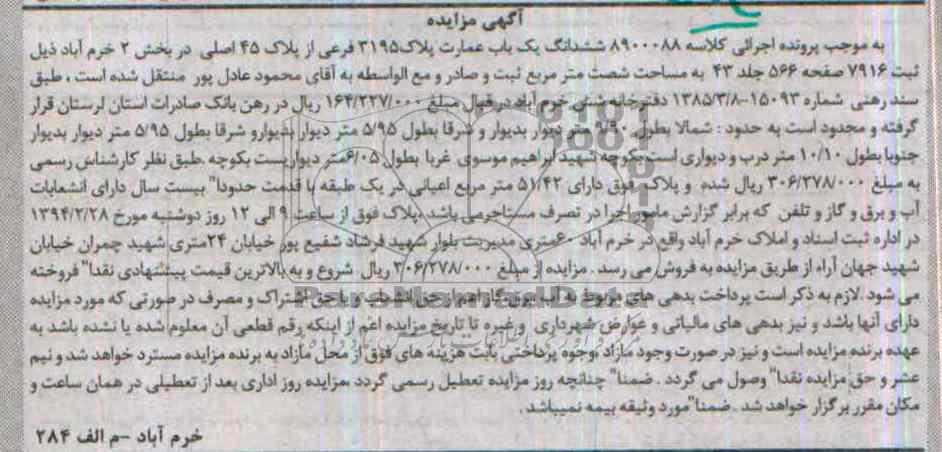 آگهی مزایده
به موجب پرونده اجرائی کلاسه ۸۹۰۰۰۸۸ ششدانگ یک باب عمارت پلاک۳۱۹۵ فرعی از پلاک ۴۵ اصلی در بخش ۲ خرم آباد ذیل
ثبت ۷۹۱۶ صفحه ۵۶۶ جلد ۴۳ به مساحت شصت متر مربع ثبت و صادر و مع الواسطه به آقای محمود عادل پور منتقل شده است ، طبق
سند رهنی شماره ۱۵۰۹۳-۱۳۸۵/۳/۸ دفترخانه شش خرم آباد در قبال مبلغ ۱۶۴/۲۲۷/۰۰۰ ریال در رهن بانک صادرات استان لرستان قرار
گرفته و محدود است به حدود : شمالا بطول متر دیوار بدیوار و شرقا بطول ۵/۹۵ متر دیوار بدیوارو شرقا بطول ۵/۹۵ متر دیوار بدیوار
جنوبا بطول ۱۰/۱۰ متر درب و دیواری است بکوچه شهید ابراهیم موسوی غربا بطول ۶/۰۵متر دیواریست بکوچه .طبق نظر کارشناس رسمی
به مبلغ ۳۰۶/۲۷۸/۰۰۰ ریال شده و پلاک فوق دارای ۵۱/۴۲ متر مربع اعیانی در یک طبقه با قدمت حدودا" بیست سال دارای انشعابات
آب و برق و گاز و تلفن که برابر گزارش مامور اجرا در تصرف مستاجرمی باشد .پلاک فوق از ساعت ۹ الی ۱۲ روز دوشنبه مورخ ۱۳۹۴/۲/۲۸
در اداره ثبت اسناد و املاک خرم آباد واقع در خرم آباد ۶۰متری مدیریت بلوار شهید فرشاد شفیع پور خیابان ۲۴متری شهید چمران خیابان
شهید جهان آراء از طریق مزایده به فروش می رسد . مزایده از مبلغ ۳۰۶/۲۷۸/۰۰۰ ریال شروع و به بالاترین قیمت پیشنهادی نقدا" فروخته
می شود .لازم به ذکر است پرداخت بدهی های مربوط به آب ،برق، گاز اعم از حق انشعاب و یا حق اشتراک و مصرف در صورتی که مورد مزایده
دارای آنها باشد و نیز بدهی های مالیاتی و عوارض شهرداری وغیره تا تاریخ مزایده اعم از اینکه رقم قطعی آن معلوم شده یا نشده باشد به
عهده برنده مزایده است و نیز در صورت وجود مازاد ،وجوه پرداختی بابت هزینه های فوق از محل مازاد به برنده مزایده مسترد خواهد شد و نیم
عشر و حق مزایده نقدا" وصول می گردد . ضمنا" چنانچه روز مزایده تعطیل رسمی گردد ،مزایده روز اداری بعد از تعطیلی در همان ساعت و
مکان مقرر برگزار خواهد شد . ضمنا"مورد وثیقه بیمه نمیباشد .
خرم آباد -م الف ۲۸۴
ParsNamadData